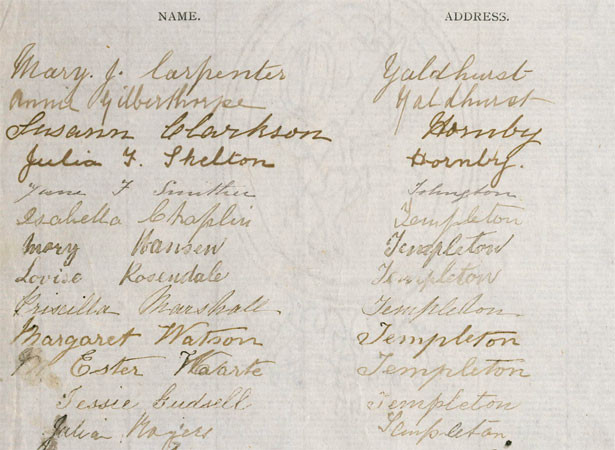 NAME. ADDRESS.
Mary. J. Carpenter Yaldhurst
Annie Gilberthorpe Yaldhurst
Susann Clarkson Hornby
Julia F. Shelton Hornby.
Jane F
Isabella Chaplin Templeton
Mary Hansen Templeton
Louise Rosendale Templeton
Priscilla Marshall Templeton.
Margaret Watson Templeton
Ester Templeton
Jessie Gudsell Templeton
Julia Rogers Templeton